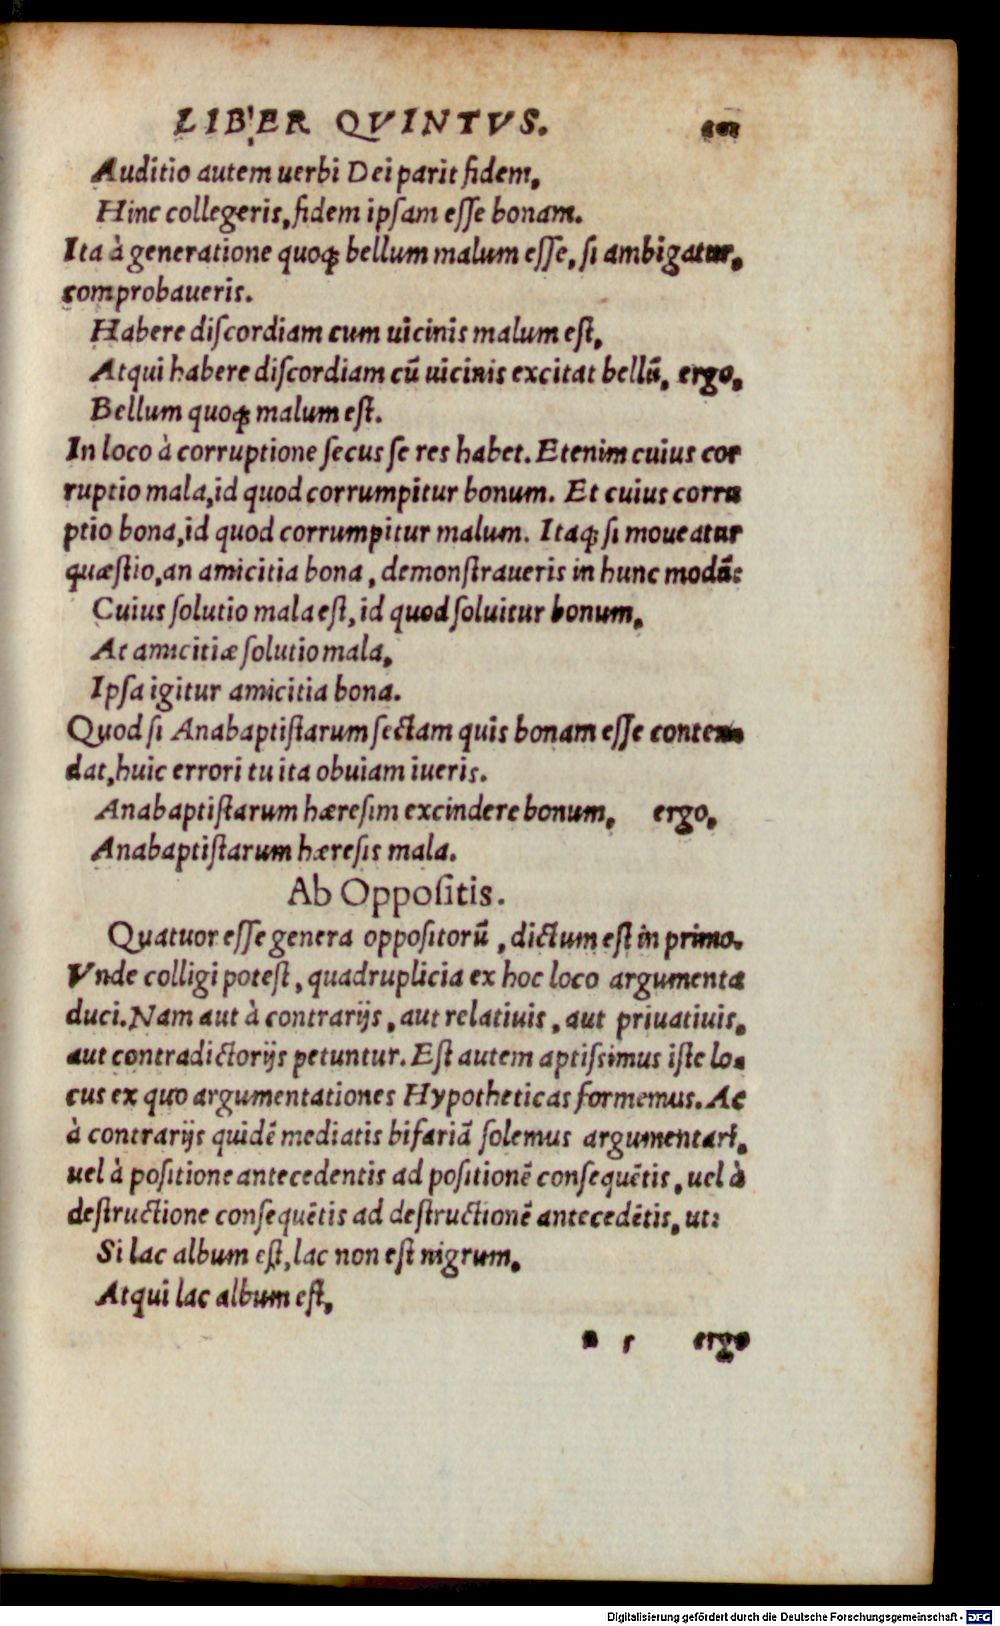 LIBER QVINTVS.
Auditio autem uerbi Dei parit fidem,
Hinc collegeris, fidem ipſam eſſe bonam.
Ita à generatione quoq; bellum malum eſſe, ſi ambigatur,
comprobaueris.
Habere diſcordiam cum uicinis malum eſt,
Atqui habere diſcordiam cū uicinis excitat bellū, ergo,
Bellum quoq; malum eſt.
In loco à corruptione ſecus ſe res habet. Etenim cuius cor
ruptio mala, id quod corrumpitur bonum. Et cuius corru
ptio bona, id quod corrumpitur malum. Itaq; ſi moueatur
quæſtio, an amicitia bona, demonſtraueris in hunc modū:
Cuius ſolutio mala eſt, id quod ſoluitur bonum,
At amicitiæ ſolutio mala,
Ipſa igitur amicitia bona.
Quod ſi Anabaptiſtarum ſectam quis bonam eſſe conten
dat, huic errori tu ita obuiam iueris.
Anabaptiſtarum hæreſim excindere bonum, ergo,
Anabaptiſtarum hæreſis mala.
Ab Oppoſitis.
Quatuor eſſe genera oppoſitorū, dictum eſt in primo.
Vnde colligi poteſt, quadruplicia ex hoc loco argumenta
duci. Nam aut à contrarijs, aut relatiuis, aut priuatiuis,
aut contradictorijs petuntur. Eſt autem aptiſsimus iſte lo-
cus ex quo argumentationes Hypotheticas formemus. Ac
à contrarijs quidē mediatis bifariā ſolemus argumentari,
uel à poſitione antecedentis ad poſitionē conſequētis, uel à
deſtructione conſequētis ad deſtructionē antecedētis, ut:
Si lac album eſt, lac non eſt nigrum,
Atqui lac album eſt,
ergo
Digitalisierung gefördert durch die Deutsche Forschungsgemeinschaft - DFG